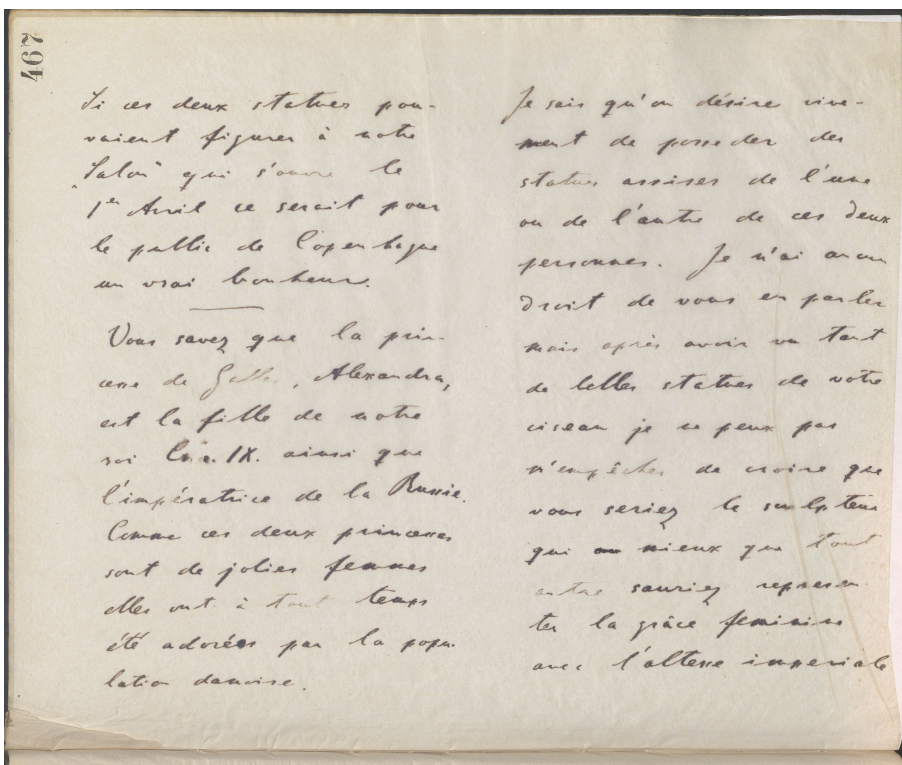 467
Si ces deux statues pou-
vaient figurer à notre
"Salon" qui s'ouvre le
1er Avril ce serait pour
le public de Copenhague
un vrai bonheur.
Vous savez que la prin-
cesse de Galles, Alexandra,
est la fille de notre
roi Chr. IX. ainsi que
l'impératrice de la Russie.
Comme ces deux princesses
sont de jolies femmes
elles ont à tout temps
été adorées par la popu-
lation danoise.
Je sais qu'on désire vive-
ment de posseder des
statues assises de l'une
ou de l'autre de ces deux
personnes. Je n'ai aucun
droit de vous en parler
mais après avoir vu tant
de belles statues de votre
ciseau je ne peux pas
m'empêcher de croire que
vous seriez le sculpteur
qui au mieux que tout
autre sauriez represen-
ter la grâce feminine
avec l'altesse imperiale